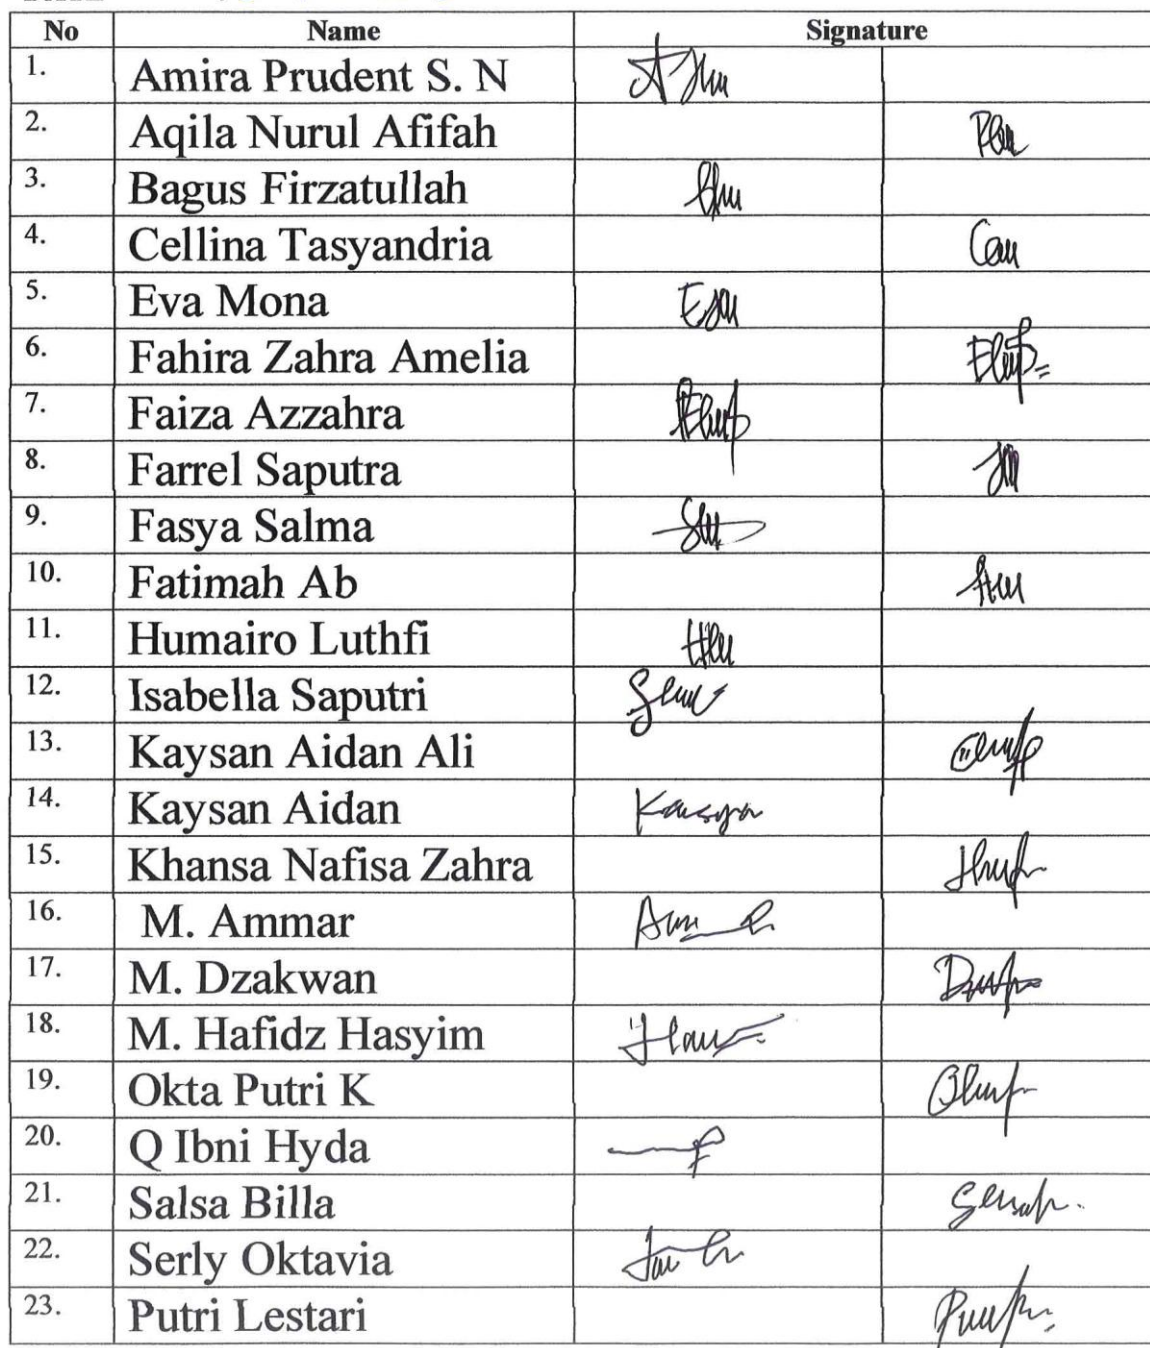 No Name Signature
1. Amira Prudent S. N
2. Aqila Nurul Afifah
3. Bagus Firzatullah
4. Cellina Tasyandria
5. Eva Mona
6. Fahira Zahra Amelia
7. Faiza Azzahra
8. Farrel Saputra
9. Fasya Salma
10. Fatimah Ab
11. Humairo Luthfi
12. Isabella Saputri
13. Kaysan Aidan Ali
14. Kaysan Aidan
15. Khansa Nafisa Zahra
16. M. Ammar
17. M. Dzakwan
18. M. Hafidz Hasyim
19. Okta Putri K
20. Q Ibni Hyda
21. Salsa Billa
22. Serly Oktavia
23. Putri Lestari